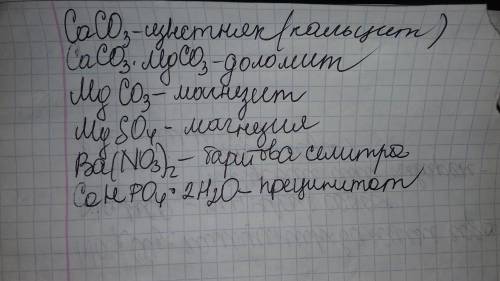 CaCO₃ - известняк (кальцит)
CaCO₃·MgCO₃ - доломит
MgCO₃ - магнезит
MgSO₄ - магнезия
Ba(NO₃)₂ - баритова селитра
CaHPO₄·2H₂O - преципитат